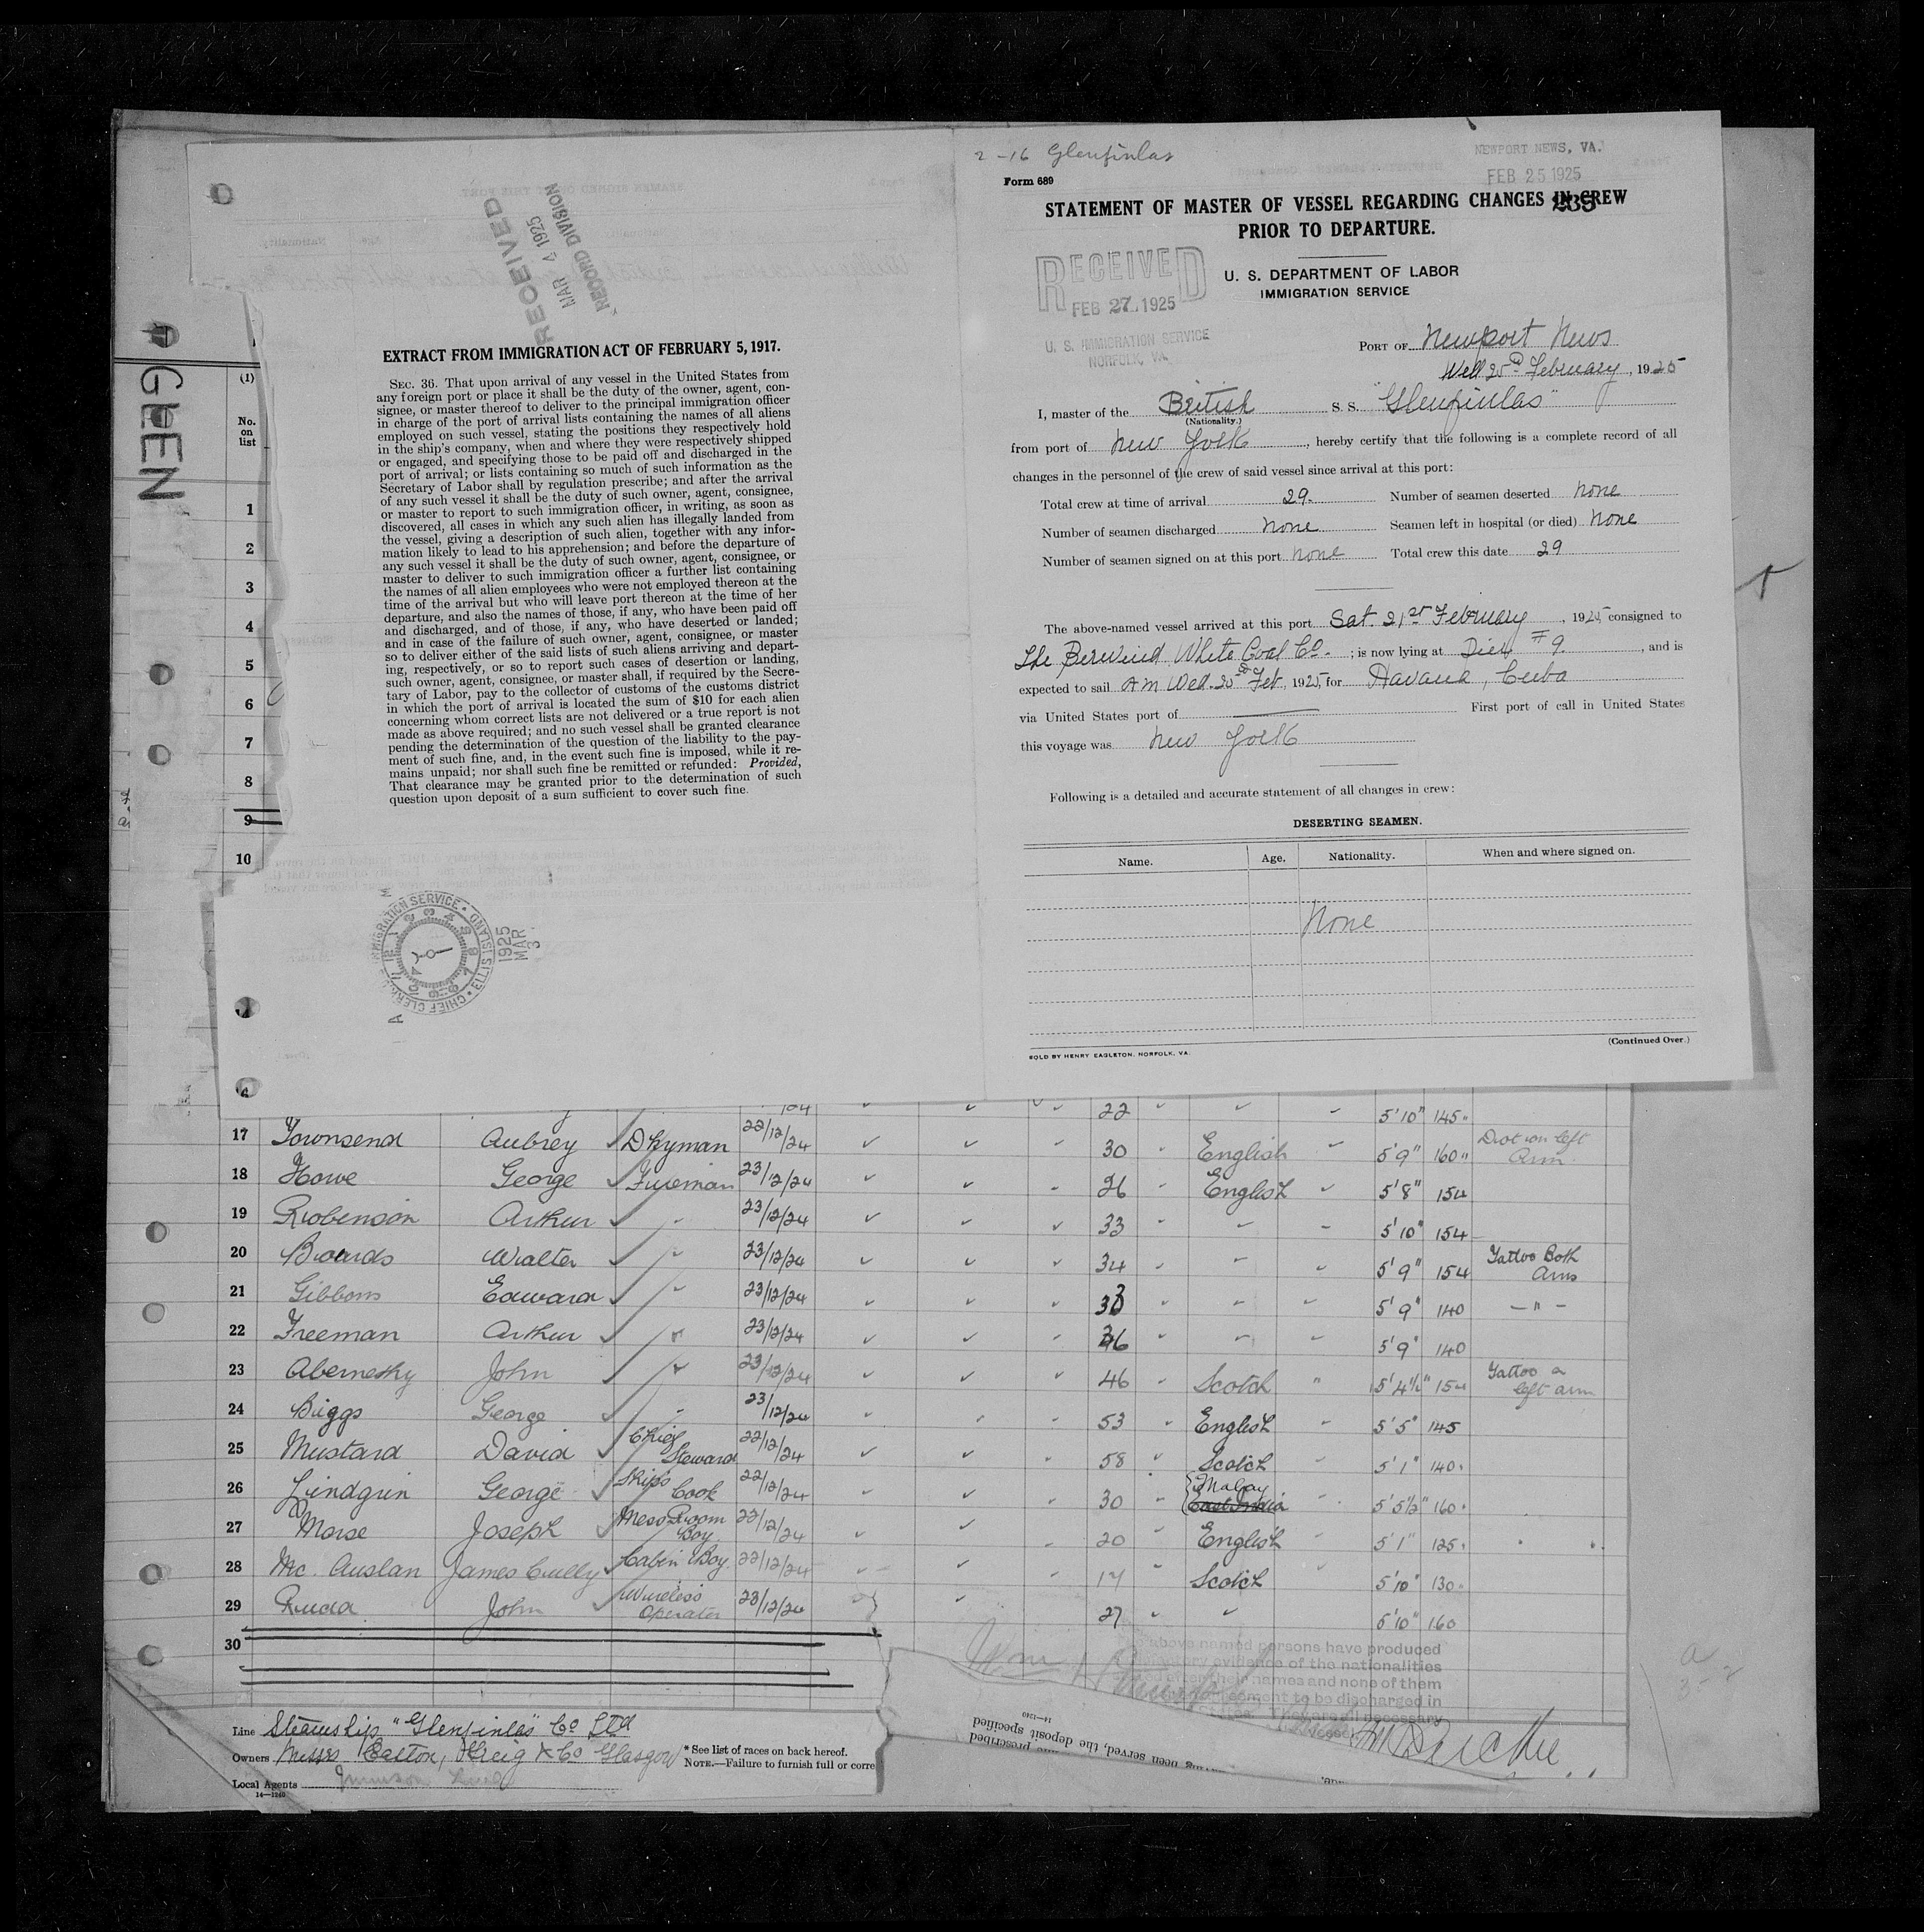 2-16 Glenfinlas
NEWPORT NEWS, VA.
FEB 25 1925
Form 689
235
STATEMENT OF MASTER OF VESSEL REGARDING CHANGES IN CREW
PRIOR TO DEPARTURE.
U. S. DEPARTMENT OF LABOR
IMMIGRATION SERVICE
RECEIVED
FEB 27 1925
U. S. IMMIGRATION SERVICE
NORFOLK, VA.
PORT OF Newport News
Wed 25th February, 1925
I, master of the British S. S. "Glenfinlas"
(Nationality.)
from port of New York, hereby certify that the following is a complete record of all
changes in the personnel of the crew of said vessel since arrival at this port:
Total crew at time of arrival 29. Number of seamen deserted None
Number of seamen discharged None Seamen left in hospital (or died) None
Number of seamen signed on at this port None Total crew this date 29
The above-named vessel arrived at this port Sat. 21st February, 1925 consigned to
The Berwind White Coal Co. ; is now lying at Pier #9, and is
expected to sail AM Wed. 25th Feb, 1925, for Havana, Cuba
via United States port of First port of call in United States
this voyage was New York
Following is a detailed and accurate statement of all changes in crew:
DESERTING SEAMEN.
Name. Age. Nationality. When and where signed on.
None
SOLD BY HENRY EAGLETON, NORFOLK, VA.
(Continued Over.)
RECEIVED
MAR 4 1925
RECORD DIVISION
EXTRACT FROM IMMIGRATION ACT OF FEBRUARY 5, 1917.
SEC. 36. That upon arrival of any vessel in the United States from
any foreign port or place it shall be the duty of the owner, agent, con-
signee, or master thereof to deliver to the principal immigration officer
in charge of the port of arrival lists containing the names of all aliens
employed on such vessel, stating the positions they respectively hold
in the ship's company, when and where they were respectively shipped
or engaged, and specifying those to be paid off and discharged in the
port of arrival; or lists containing so much of such information as the
Secretary of Labor shall by regulation prescribe; and after the arrival
of any such vessel it shall be the duty of such owner, agent, consignee,
or master to report to such immigration officer, in writing, as soon as
discovered, all cases in which any such alien has illegally landed from
the vessel, giving a description of such alien, together with any infor-
mation likely to lead to his apprehension; and before the departure of
any such vessel it shall be the duty of such owner, agent, consignee, or
master to deliver to such immigration officer a further list containing
the names of all alien employees who were not employed thereon at the
time of the arrival but who will leave port thereon at the time of her
departure, and also the names of those, if any, who have been paid off
and discharged, and of those, if any, who have deserted or landed;
and in case of the failure of such owner, agent, consignee, or master
so to deliver either of the said lists of such aliens arriving and depart-
ing, respectively, or so to report such cases of desertion or landing,
such owner, agent, consignee, or master shall, if required by the Secre-
tary of Labor, pay to the collector of customs of the customs district
in which the port of arrival is located the sum of $10 for each alien
concerning whom correct lists are not delivered or a true report is not
made as above required; and no such vessel shall be granted clearance
pending the determination of the question of the liability to the pay-
ment of such fine, and, in the event such fine is imposed, while it re-
mains unpaid; nor shall such fine be remitted or refunded: Provided,
That clearance may be granted prior to the determination of such
question upon deposit of a sum sufficient to cover such fine.
IMMIGRATION SERVICE · ELLIS ISLAND · CHIEF CLERK
1925
MAR
3
GLEN
(1)
No.
on
list
1
2
3
4
5
6
7
8
9
10
22 5'10" 145
17 Townsend Aubrey Dkyman 22/12/24 30 English 5'9" 160 Dot on left Arm
18 Howe George Fireman 23/12/24 26 English 5'8" 154
19 Robinson Arthur " 23/12/24 33 5'10" 154
20 Boards Walter " 23/12/24 34 5'9" 154 Tattoo Both Arms
21 Gibbons Edward " 23/12/24 33 5'9" 140 - " -
22 Freeman Arthur " 23/12/24 36 5'9" 140
23 Abernethy John " 23/12/24 46 Scotch " 5'4½" 154 Tattoo on left arm
24 Biggs George " 23/12/24 53 English 5'5" 145
25 Mustard David Chief Steward 22/12/24 58 Scotch 5'1" 140
26 Lindgrin George Ship's Cook 22/12/24 30 Malay East India 5'5½" 160
27 Morse Joseph Mess Room Boy 22/12/24 20 English 5'1" 125
28 Mc. Auslan James Cully Cabin Boy 22/12/24 17 Scotch 5'10" 130
29 Rudd John Wireless Operator 23/12/24 27 " 5'10" 160
30
above named persons have produced
evidence of the nationalities
names and none of them
to be discharged in
necessary
Line Steamship "Glenfinlas" Co Ltd
Owners Messrs Calton, Greig & Co Glasgow
Local Agents
14—1240
* See list of races on back hereof.
NOTE.—Failure to furnish full or corre
14—1240
been served, the deposit specified
prescribed